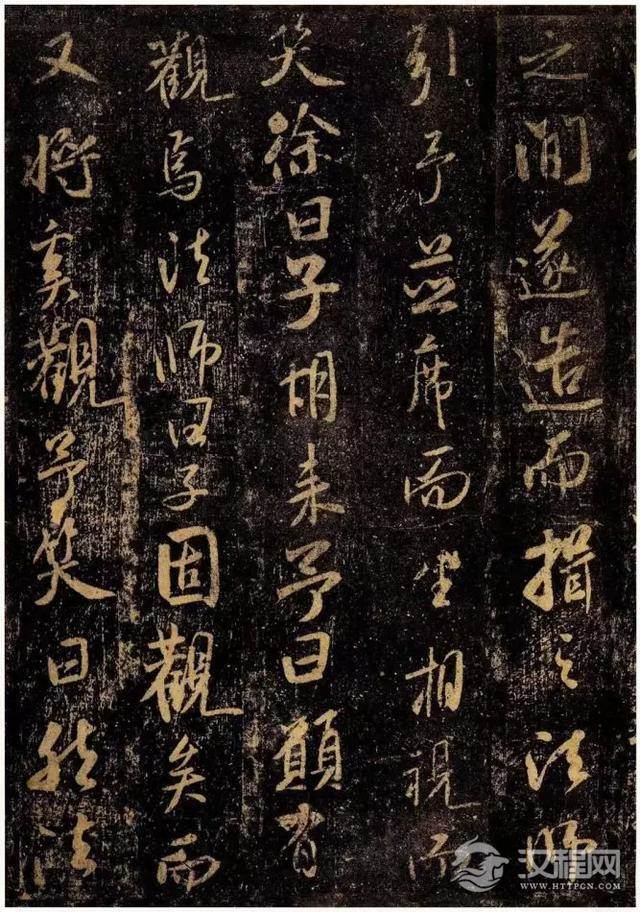 之間遂造而揖之法師
引予並席而坐相視而
笑徐曰子胡來予曰願有
觀焉法師曰子固觀矣而
又將奚觀予笑曰然法
汉程网
WWW.HTTPCN.COM